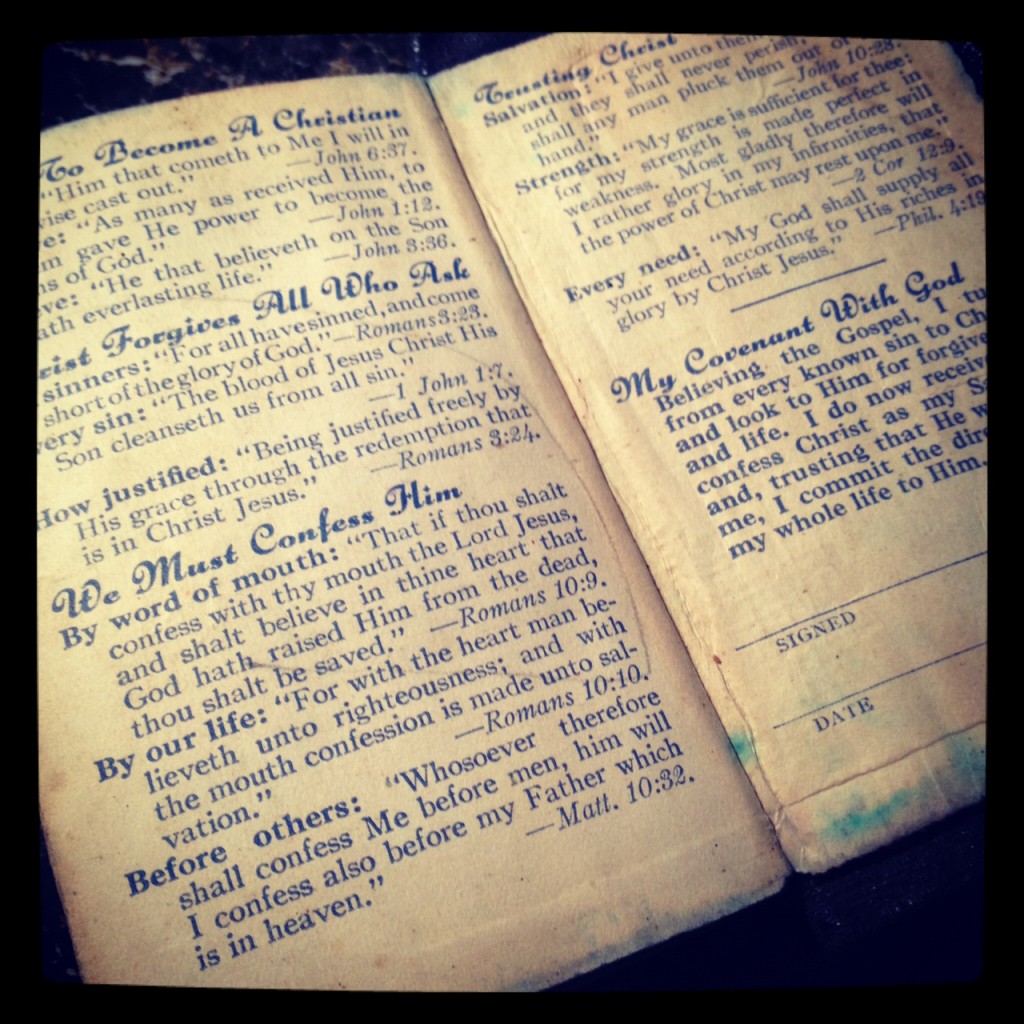 To Become A Christian
"Him that cometh to Me I will in
wise cast out."
—John 6:37.
"As many as received Him, to
gave He power to become the
of God."
—John 1:12.
"He that believeth on the Son
everlasting life."
—John 3:36.
Forgives All Who Ask
sinners: "For all have sinned, and come
short of the glory of God."—Romans 3:23.
sin: "The blood of Jesus Christ His
Son cleanseth us from all sin."
—1 John 1:7.
How justified: "Being justified freely by
His grace through the redemption that
is in Christ Jesus."
—Romans 3:24.
We Must Confess Him
By word of mouth: "That if thou shalt
confess with thy mouth the Lord Jesus,
and shalt believe in thine heart that
God hath raised Him from the dead,
thou shalt be saved." —Romans 10:9.
By our life: "For with the heart man be-
lieveth unto righteousness; and with
the mouth confession is made unto sal-
vation."
—Romans 10:10.
Before others: "Whosoever therefore
shall confess Me before men, him will
I confess also before my Father which
is in heaven."
—Matt. 10:32.
Trusting Christ
Salvation: "I give unto them
and they shall never perish,
shall any man pluck them out of
hand."
—John 10:28.
Strength: "My grace is sufficient for thee:
for my strength is made perfect in
weakness. Most gladly therefore will
I rather glory in my infirmities, that
the power of Christ may rest upon me."
—2 Cor 12:9.
Every need: "My God shall supply all
your need according to His riches in
glory by Christ Jesus."
—Phil. 4:19
My Covenant With God
Believing the Gospel, I
from every known sin to
and look to Him for
and life. I do now
confess Christ as my
and, trusting that He
me, I commit the
my whole life to Him.
SIGNED
DATE